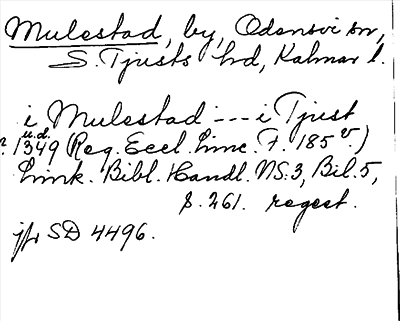 Mulestad, by, Odensvi sn,
S. Tjusts hd, Kalmar l.
i Mulestad --- i Tjust
u.d.
? 1349 (Reg. Eccl. Linc. F. 185 v.)
Link. Bibl. Handl. NS.3, Bil.5,
s. 261. regest.
jfr SD 4496.